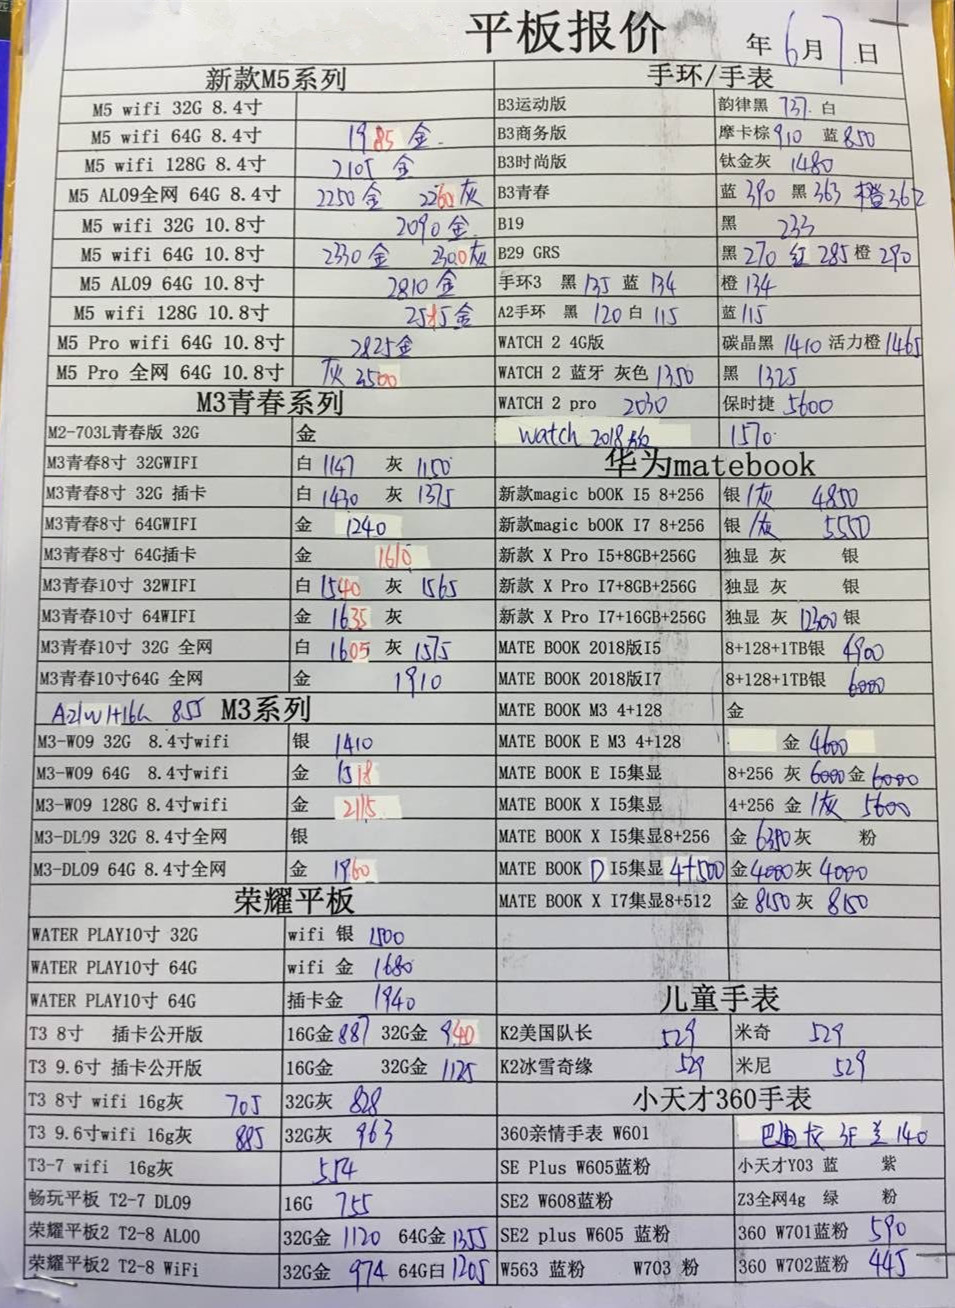 平板报价
年 6月7日
新款M5系列
M5 wifi 32G 8.4寸
M5 wifi 64G 8.4寸 1985 金
M5 wifi 128G 8.4寸 2105 金
M5 AL09全网 64G 8.4寸 2250金 2260灰
M5 wifi 32G 10.8寸 2090金
M5 wifi 64G 10.8寸 2330金 2300灰
M5 AL09 64G 10.8寸 2810金
M5 wifi 128G 10.8寸 2585金
M5 Pro wifi 64G 10.8寸 2825金
M5 Pro 全网 64G 10.8寸 灰 3500
M3青春系列
M2-703L青春版 32G 金
M3青春8寸 32GWIFI 白 1147 灰 1150
M3青春8寸 32G 插卡 白 1430 灰 1375
M3青春8寸 64GWIFI 金 1240
M3青春8寸 64G插卡 金 1610
M3青春10寸 32WIFI 白 1540 灰 1565
M3青春10寸 64WIFI 金 1635 灰
M3青春10寸 32G 全网 白 1605 灰 1575
M3青春10寸64G 全网 金 1910
855 M3系列
M3-W09 32G 8.4寸wifi 银 1410
M3-W09 64G 8.4寸wifi 金 1518
M3-W09 128G 8.4寸wifi 金 2115
M3-DL09 32G 8.4寸全网 银
M3-DL09 64G 8.4寸全网 金 1960
荣耀平板
WATER PLAY10寸 32G wifi 银 1500
WATER PLAY10寸 64G wifi 金 1680
WATER PLAY10寸 64G 插卡金 1940
T3 8寸 插卡公开版 16G金 887 32G金 940
T3 9.6寸 插卡公开版 16G金 32G金 1125
T3 8寸 wifi 16g灰 705 32G灰 828
T3 9.6寸wifi 16g灰 885 32G灰 963
T3-7 wifi 16g灰 554
畅玩平板 T2-7 DL09 16G 755
荣耀平板2 T2-8 AL00 32G金 1120 64G金 1355
荣耀平板2 T2-8 WiFi 32G金 974 64G白 1205
手环/手表
B3运动版 韵律黑 737 白
B3商务版 摩卡棕 910 蓝 850
B3时尚版 钛金灰 1480
B3青春 蓝 390 黑 363 橙 362
B19 黑 233
B29 GRS 黑 270 红 285 橙 290
手环3 黑 135 蓝 134 橙 134
A2手环 黑 120 白 115 蓝 115
WATCH 2 4G版 碳晶黑 1410 活力橙 1465
WATCH 2 蓝牙 灰色 1350 黑 1325
WATCH 2 pro 2030 保时捷 5600
watch 2018版 1570
华为matebook
新款magic bOOK I5 8+256 银/灰 4850
新款magic bOOK I7 8+256 银/灰 5550
新款 X Pro I5+8GB+256G 独显 灰 银
新款 X Pro I7+8GB+256G 独显 灰 银
新款 X Pro I7+16GB+256G 独显 灰 12300 银
MATE BOOK 2018版I5 8+128+1TB银 4900
MATE BOOK 2018版I7 8+128+1TB银 6000
MATE BOOK M3 4+128 金
MATE BOOK E M3 4+128 金 4600
MATE BOOK E I5集显 8+256 灰 6000 金 6000
MATE BOOK X I5集显 4+256 金/灰 5600
MATE BOOK X I5集显8+256 金 6350 灰 粉
MATE BOOK D I5集显 4+500 金 4000 灰 4000
MATE BOOK X I7集显8+512 金 8150 灰 8150
儿童手表
K2美国队长 529 米奇 529
K2冰雪奇缘 529 米尼 529
小天才360手表
360亲情手表 W601 蓝 140
SE Plus W605蓝粉 小天才Y03 蓝 紫
SE2 W608蓝粉 Z3全网4g 绿 粉
SE2 plus W605 蓝粉 360 W701蓝粉 590
W563 蓝粉 W703 粉 360 W702蓝粉 445